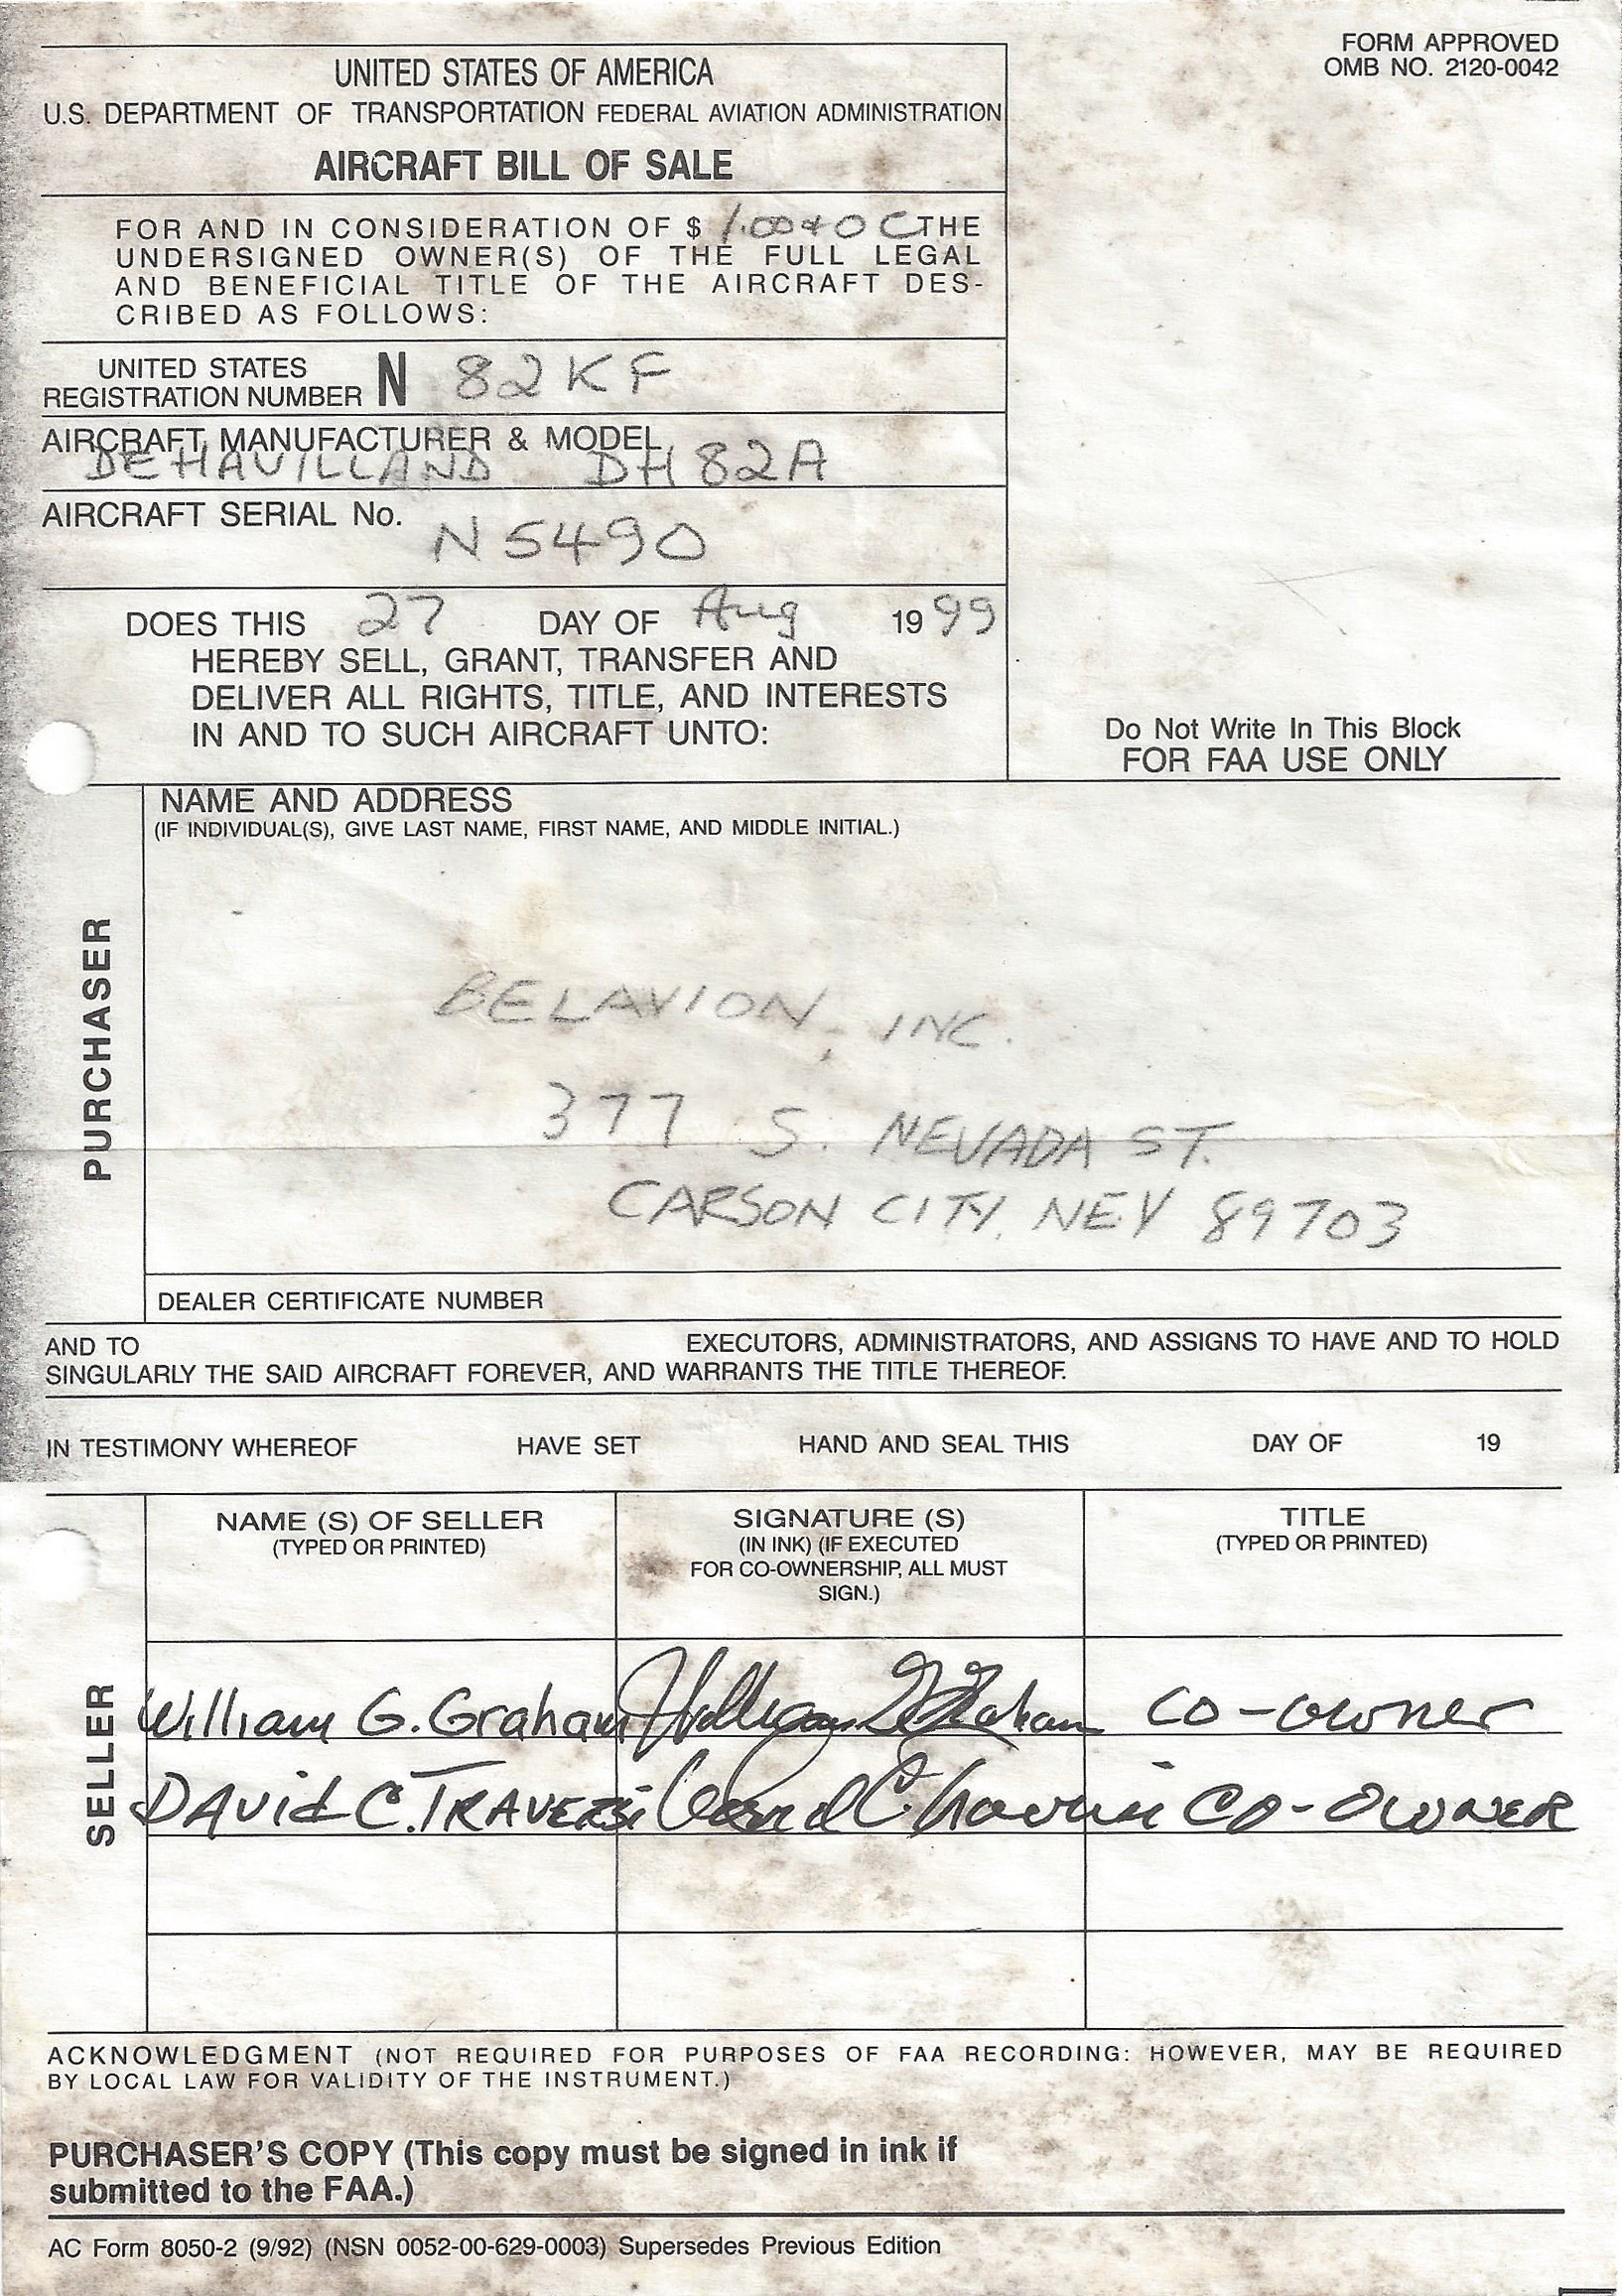 FORM APPROVED
OMB NO. 2120-0042
UNITED STATES OF AMERICA
U.S. DEPARTMENT OF TRANSPORTATION FEDERAL AVIATION ADMINISTRATION
AIRCRAFT BILL OF SALE
FOR AND IN CONSIDERATION OF $ 1.00 + O C THE
UNDERSIGNED OWNER(S) OF THE FULL LEGAL
AND BENEFICIAL TITLE OF THE AIRCRAFT DES-
CRIBED AS FOLLOWS:
UNITED STATES
REGISTRATION NUMBER N 82KF
AIRCRAFT MANUFACTURER & MODEL
DEHAVILLAND DH82A
AIRCRAFT SERIAL No.
N5490
DOES THIS 27 DAY OF Aug 1999
HEREBY SELL, GRANT, TRANSFER AND
DELIVER ALL RIGHTS, TITLE, AND INTERESTS
IN AND TO SUCH AIRCRAFT UNTO:
Do Not Write In This Block
FOR FAA USE ONLY
PURCHASER
NAME AND ADDRESS
(IF INDIVIDUAL(S), GIVE LAST NAME, FIRST NAME, AND MIDDLE INITIAL.)
BELAVION, INC.
377 S. NEVADA ST.
CARSON CITY, NEV 89703
DEALER CERTIFICATE NUMBER
AND TO EXECUTORS, ADMINISTRATORS, AND ASSIGNS TO HAVE AND TO HOLD
SINGULARLY THE SAID AIRCRAFT FOREVER, AND WARRANTS THE TITLE THEREOF.
IN TESTIMONY WHEREOF HAVE SET HAND AND SEAL THIS DAY OF 19
SELLER
NAME (S) OF SELLER
(TYPED OR PRINTED)
SIGNATURE (S)
(IN INK) (IF EXECUTED
FOR CO-OWNERSHIP, ALL MUST
SIGN.)
TITLE
(TYPED OR PRINTED)
William G. Graham William G Graham CO-owner
DAVid C. TRAVERSi David C. Traversi CO-OWNER
ACKNOWLEDGMENT (NOT REQUIRED FOR PURPOSES OF FAA RECORDING: HOWEVER, MAY BE REQUIRED
BY LOCAL LAW FOR VALIDITY OF THE INSTRUMENT.)
PURCHASER'S COPY (This copy must be signed in ink if
submitted to the FAA.)
AC Form 8050-2 (9/92) (NSN 0052-00-629-0003) Supersedes Previous Edition